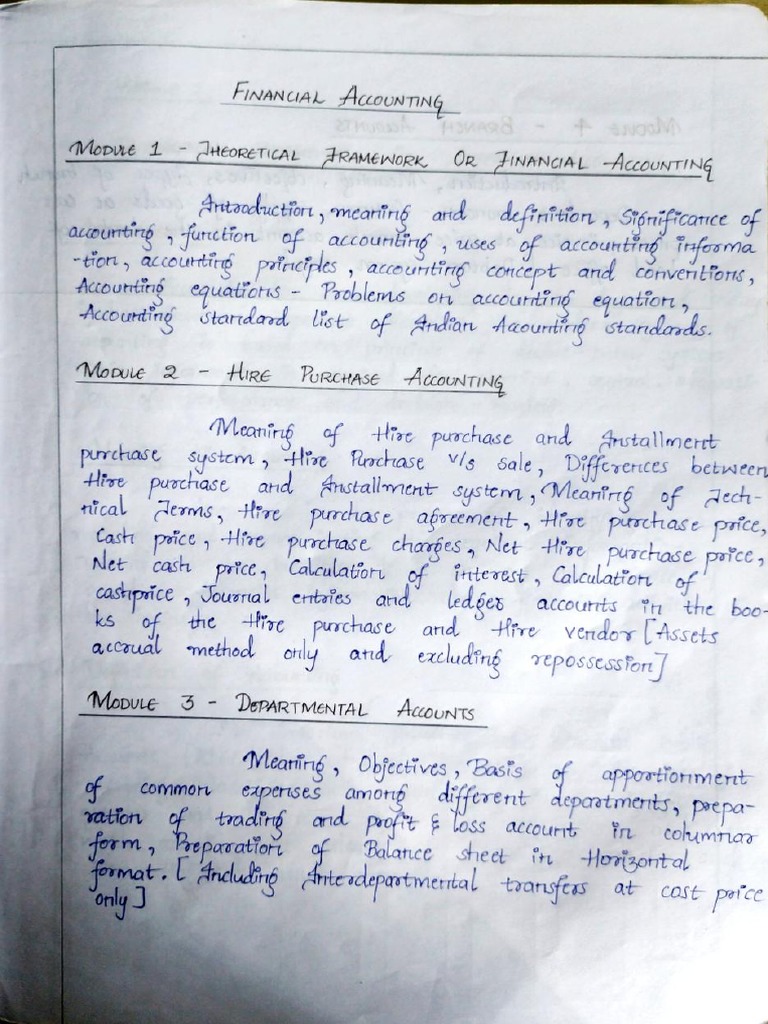 FINANCIAL ACCOUNTING
MODULE 1 - THEORETICAL FRAMEWORK OR FINANCIAL ACCOUNTING
Introduction, meaning and definition, Significance of
accounting, function of accounting, uses of accounting informa
-tion, accounting principles, accounting concept and conventions,
Accounting equations - Problems on accounting equation,
Accounting standard list of Indian Accounting standards.
MODULE 2 - HIRE PURCHASE ACCOUNTING
Meaning of Hire purchase and Installment
purchase system, Hire Purchase v/s sale, Differences between
Hire purchase and Installment system, Meaning of Tech-
nical Terms, Hire purchase agreement, Hire purchase price,
Cash price, Hire purchase charges, Net Hire purchase price,
Net cash price, Calculation of interest, Calculation of
cashprice, Journal entries and ledger accounts in the boo-
ks of the Hire purchase and Hire vendor [Assets
accrual method only and excluding repossession]
MODULE 3 - DEPARTMENTAL ACCOUNTS
Meaning, Objectives, Basis of apportionment
of common expenses among different departments, prepa-
ration of trading and profit & loss account in columnar
form, Preparation of Balance sheet in Horizontal
format. [Including Interdepartmental transfers at cost price
only]